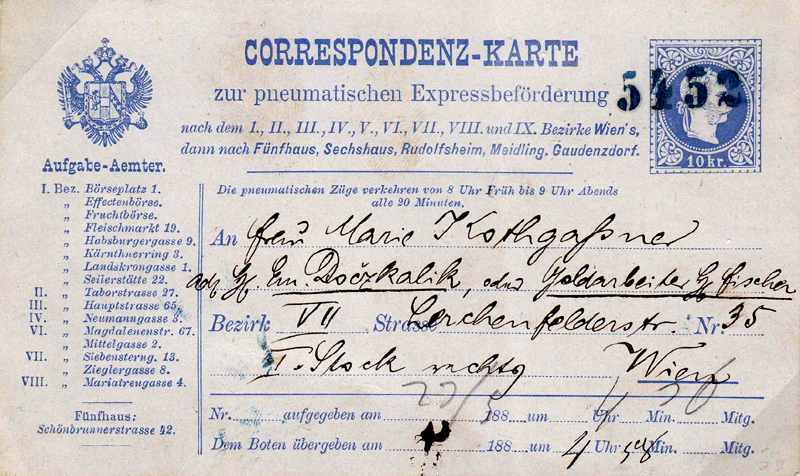 CORRESPONDENZ-KARTE
zur pneumatischen Expressbeförderung
5452
nach dem I., II., III., IV., V., VI., VII., VIII. und IX. Bezirke Wien's,
dann nach Fünfhaus, Sechshaus, Rudolfsheim, Meidling. Gaudenzdorf.
10 kr.
Aufgabe-Aemter.
I. Bez. Börseplatz 1.
„ Effectenbörse.
„ Fruchtbörse.
„ Fleischmarkt 19.
„ Habsburgergasse 9.
„ Kärnthnerring 3.
„ Landskrongasse 1.
„ Seilerstätte 22.
II. „ Taborstrasse 27.
III. „ Hauptstrasse 65.
IV. „ Neumanngasse 3.
VI. „ Magdalenenstr. 67.
„ Mittelgasse 2.
VII. „ Siebensterng. 13.
„ Zieglergasse 8.
VIII. „ Mariatreugasse 4.
Fünfhaus:
Schönbrunnerstrasse 42.
Die pneumatischen Züge verkehren von 8 Uhr Früh bis 9 Uhr Abends
alle 20 Minuten.
An Frau Marie Kothgaßner
Dočzkalik, oder Goldarbeiter Fischer
Bezirk VII Strasse Lerchenfelderstr. Nr. 35
I. Stock rechts Wien
Nr. aufgegeben am 23/5 188 um Uhr Min. Mitg.
Dem Boten übergeben am 188 um 4 Uhr Min. Mitg.